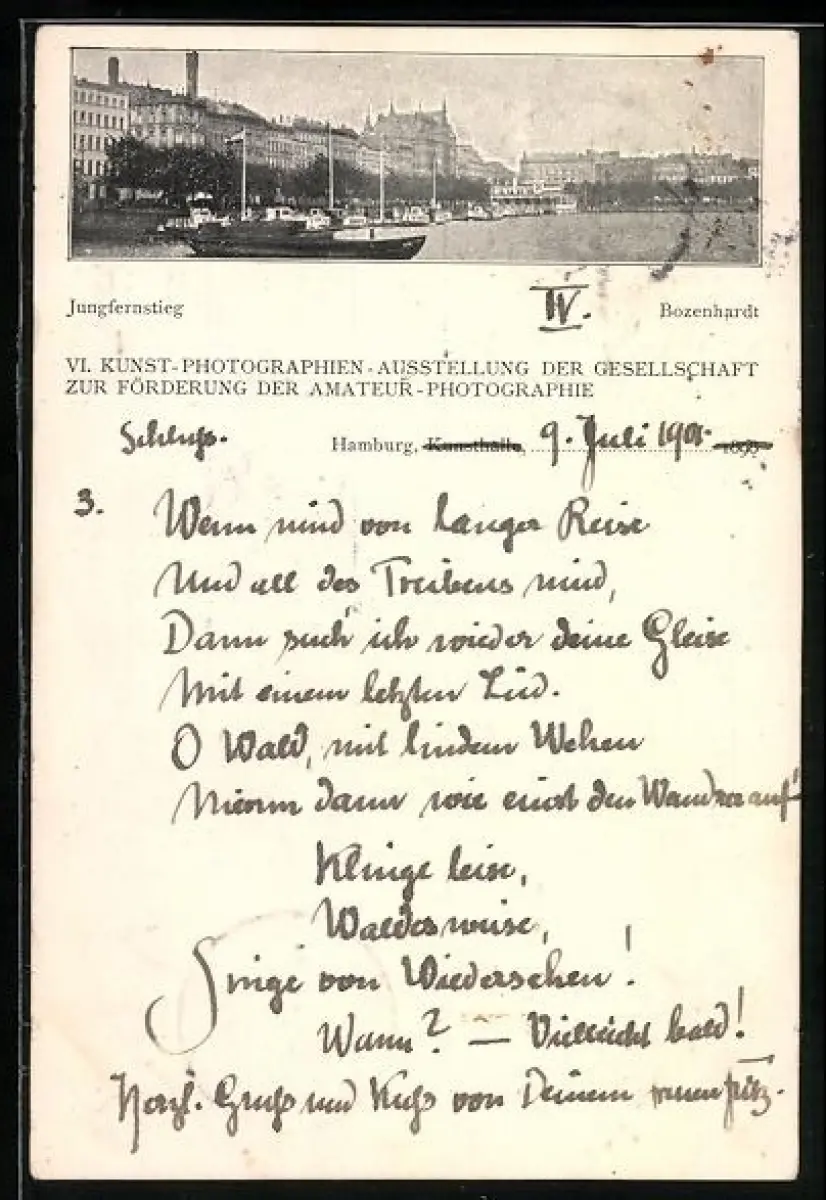 Jungfernstieg IV. Bozenhardt
VI. KUNST-PHOTOGRAPHIEN-AUSSTELLUNG DER GESELLSCHAFT
ZUR FÖRDERUNG DER AMATEUR-PHOTOGRAPHIE
Schluß. Hamburg, Kunsthalle, 9. Juli 1901. 1898
3. Wenn müd von langer Reise
Und all des Treibens müd,
Dann such' ich wieder deine Gleise
Mit einem letzten Lied.
O Wald, mit lindem Wehen
Nimm dann wie einst den Wandrer auf
Klinge leise,
Waldesweise,
Singe von Wiedersehen!
Wann? — Vielleicht bald!
Herzl. Gruß und Kuß von Deinem treuen Fritz.